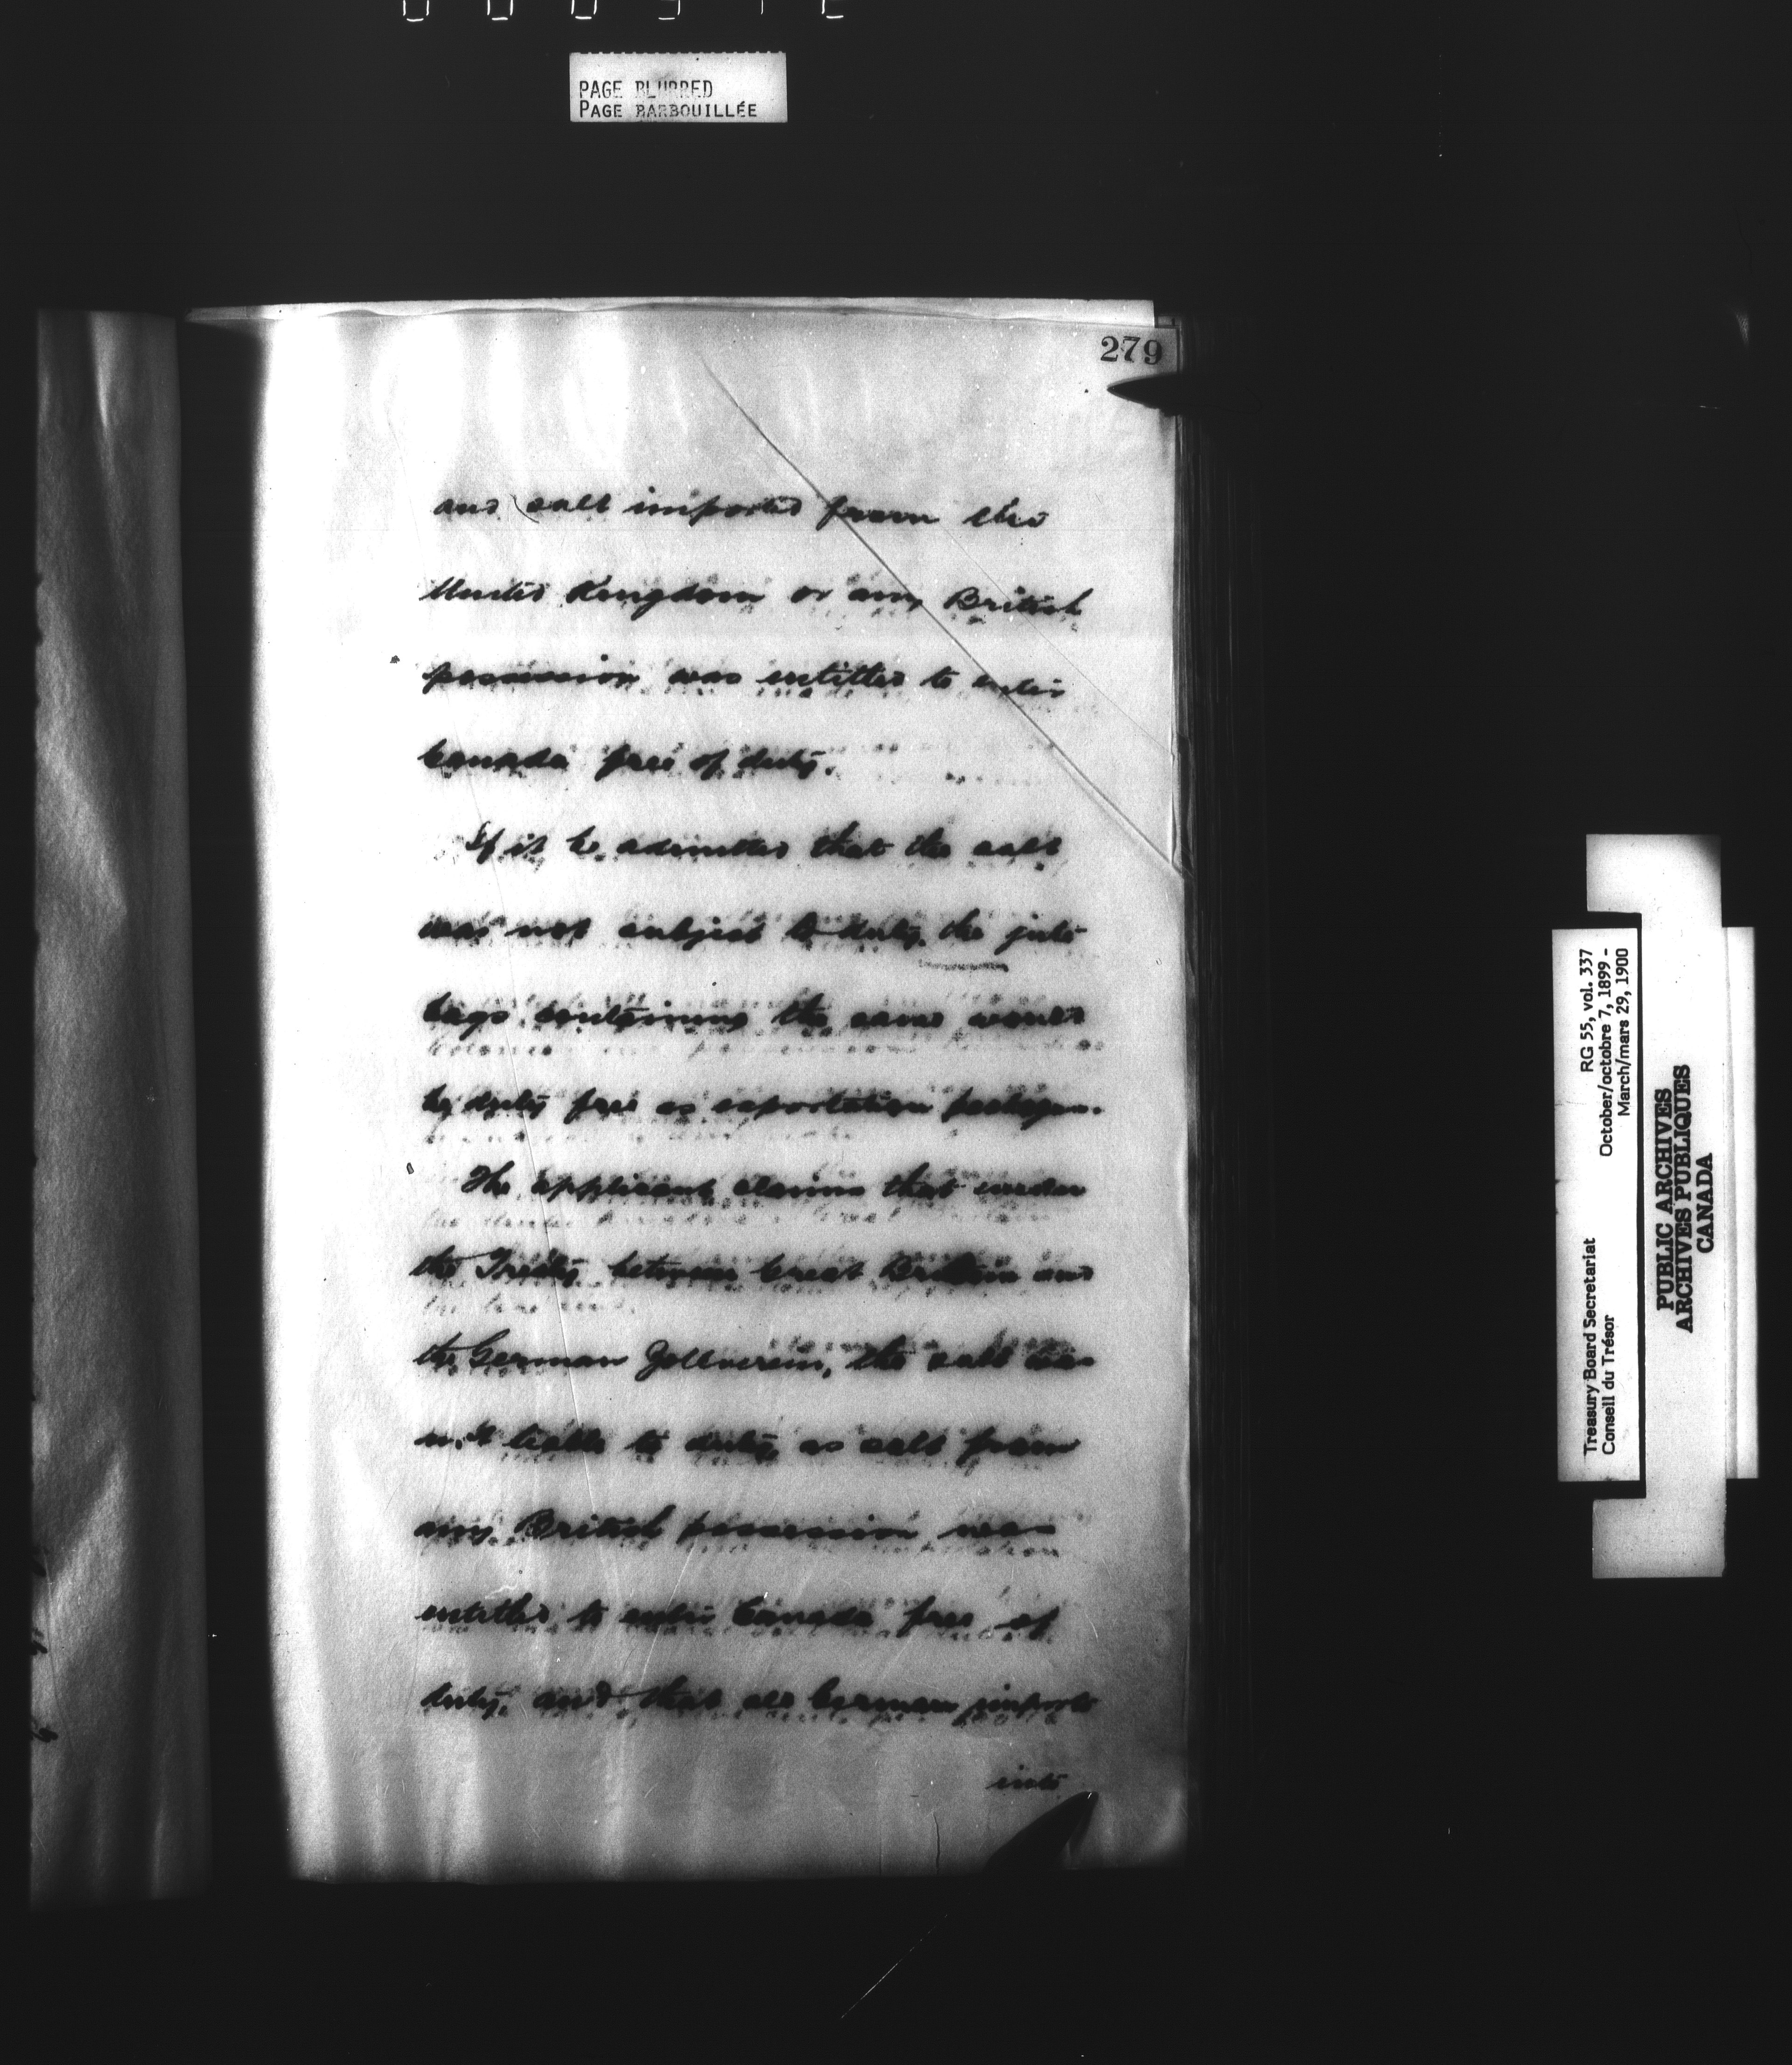 PAGE BLURRED
PAGE BARBOUILLÉE
279
and salt imported from the
United Kingdom or any British
possession was entitled to enter
Canada free of duty.
If it be admitted that the salt
was not subject to duty, the jute
bags containing the same would
be duty free as exportation packages.
The applicant claims that under
the Treaty between Great Britain and
the German Zollverein, the salt was
not liable to duty, as salt from
any British possession was
entitled to enter Canada free of
duty, and that all German imports
into
Treasury Board Secretariat RG 55, vol. 337
Conseil du Trésor October/octobre 7, 1899 -
March/mars 29, 1900
PUBLIC ARCHIVES
ARCHIVES PUBLIQUES
CANADA